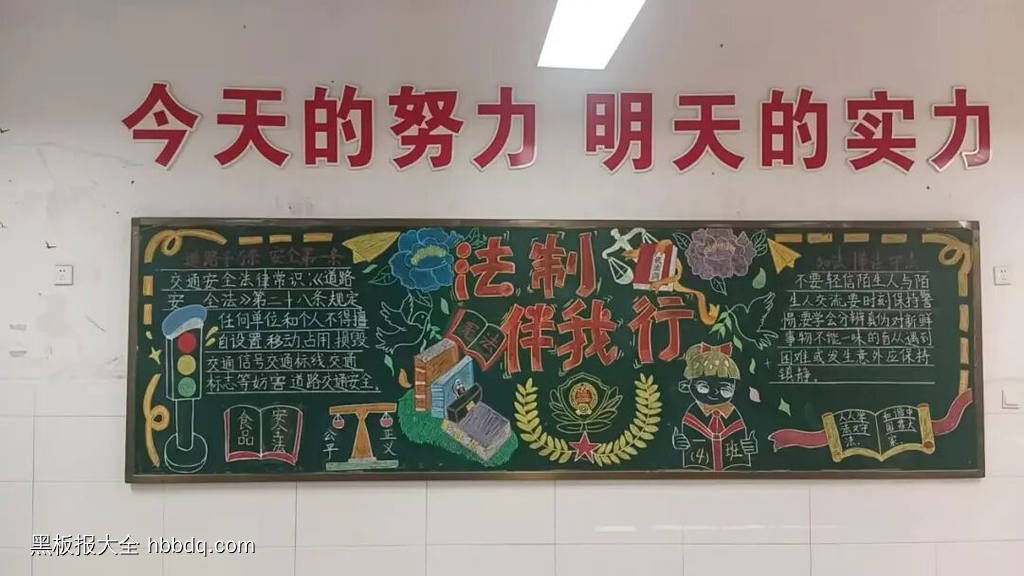 今天的努力 明天的实力
法制
伴我行
安全第一条
交通安全法律常识:《道路
安 全法》第二十八条规定
任何单位和个人不得擅
自设置移动占用损毁
交通信号交通标线交通
标志等妨害道路交通安全。
食品
安全法
公平
正义
宪法
(4)班
不要轻信陌生人与陌
生人交流要时刻保持警
惕要学会分辨真伪对新鲜
事物不能一味的盲从偶到
困难或发生意外应保持
镇静。
黑板报大全 hbbdq.com